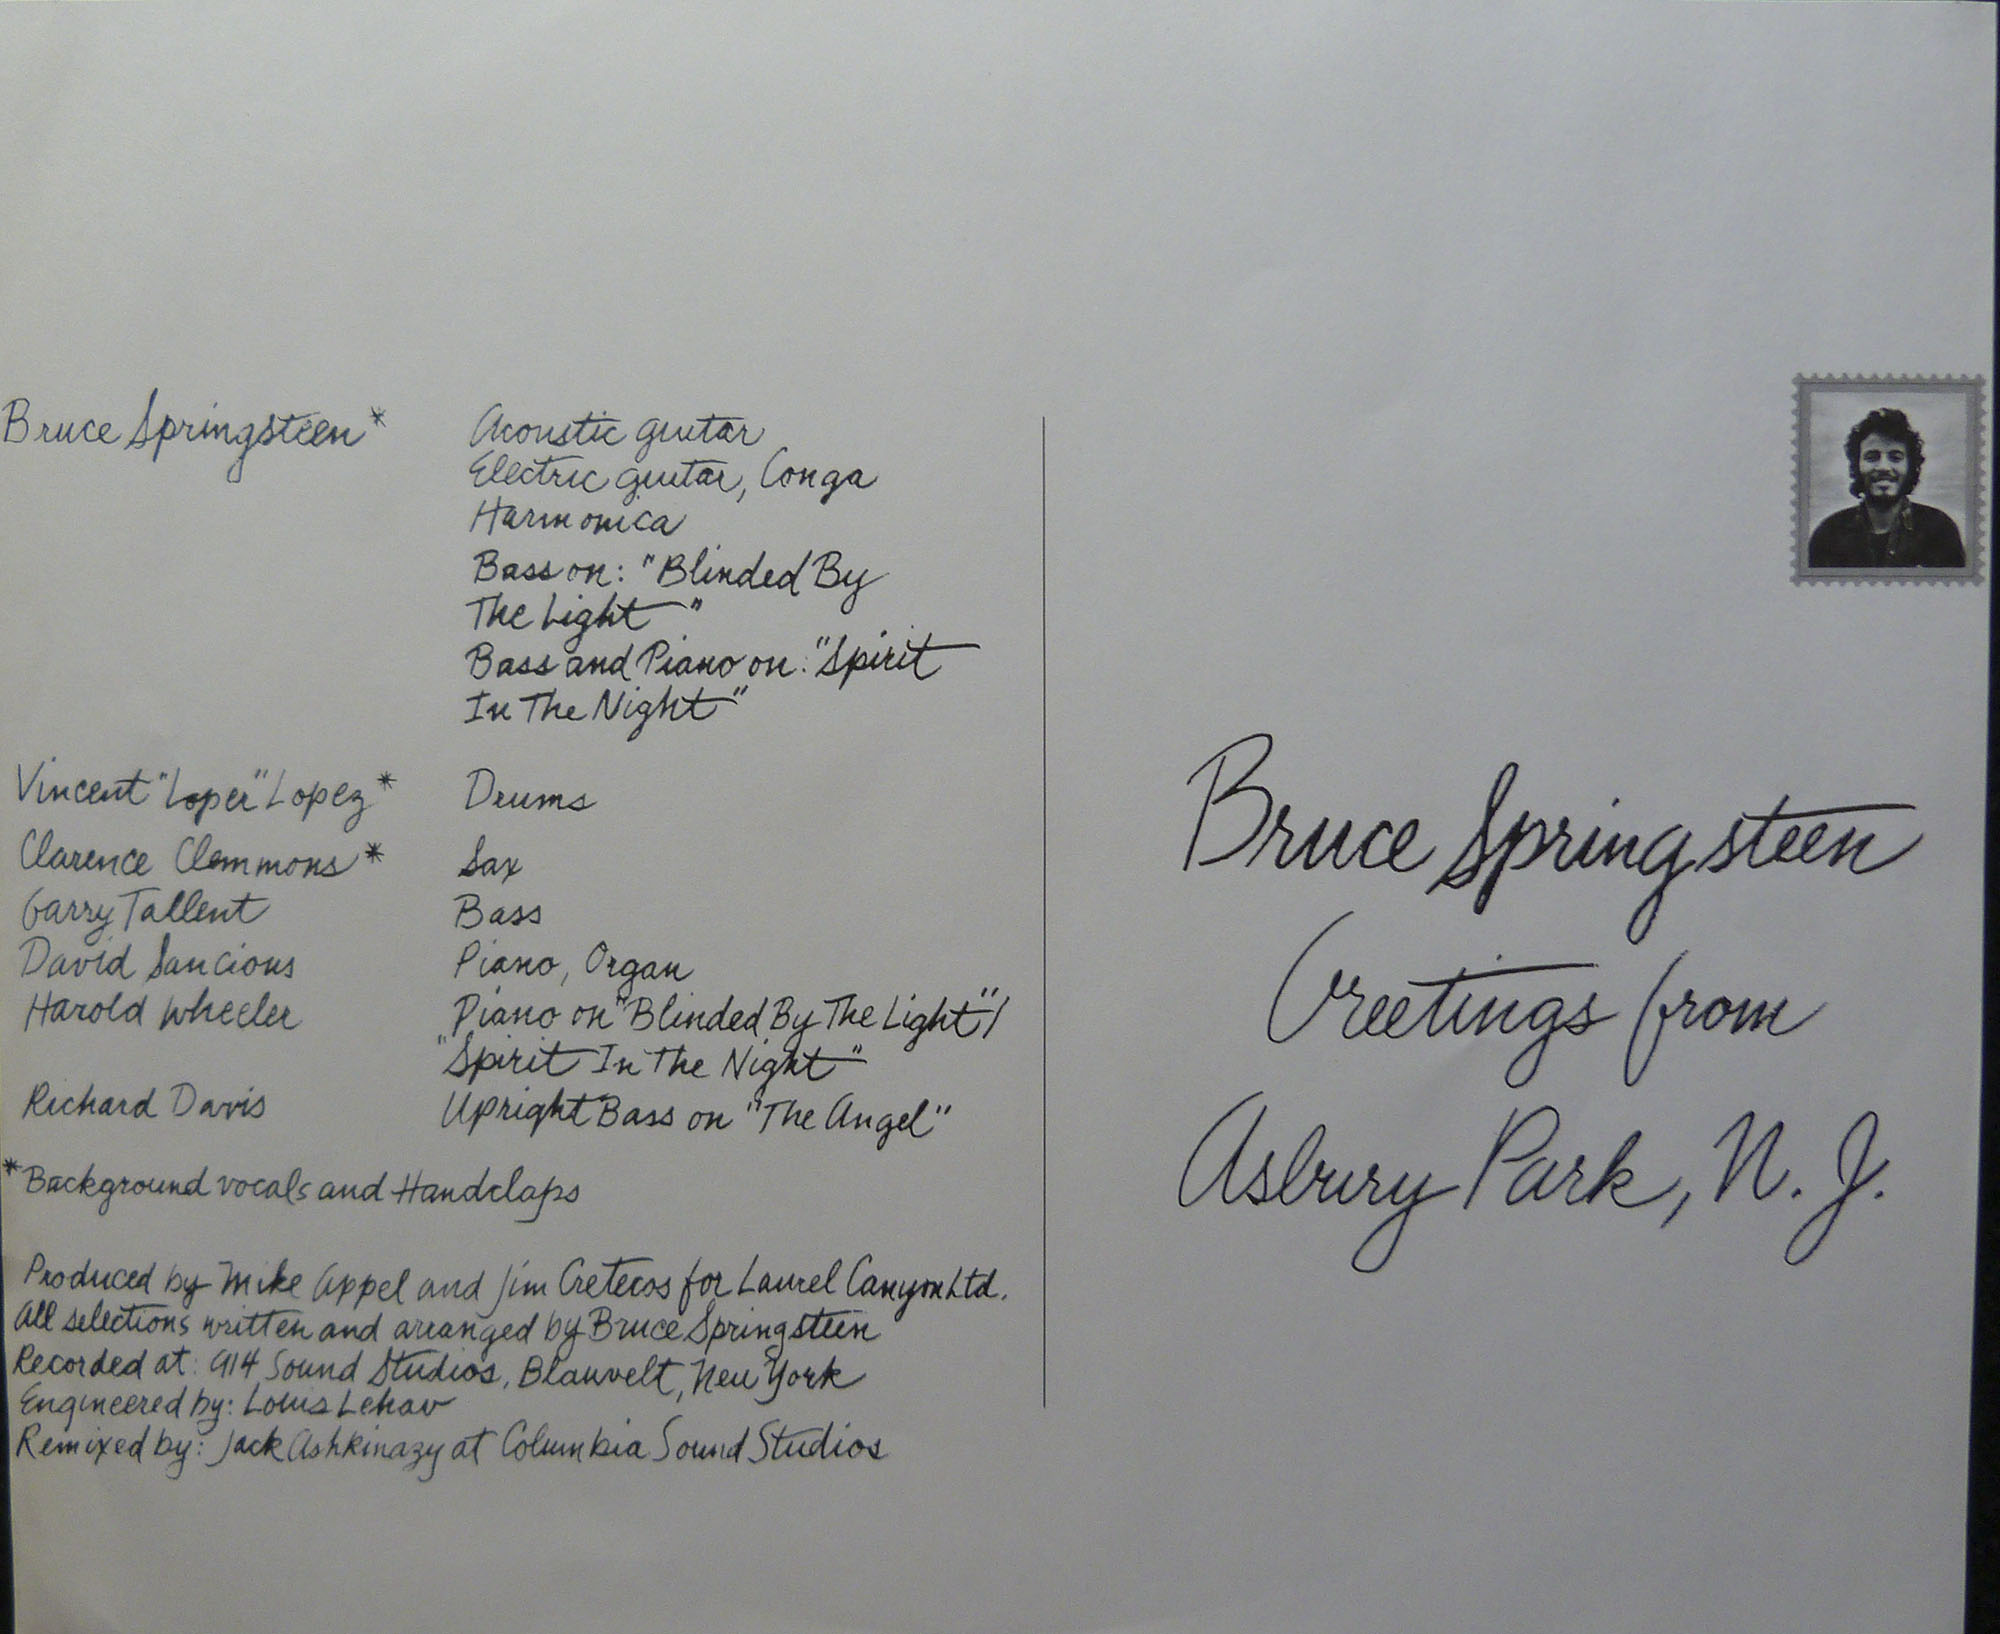 Bruce Springsteen* Acoustic guitar
Electric guitar, Conga
Harmonica
Bass on: "Blinded By
The Light"
Bass and Piano on: "Spirit
In The Night"
Vincent "Loper" Lopez* Drums
Clarence Clemmons* Sax
Garry Tallent Bass
David Sancious Piano, Organ
Harold Wheeler Piano on "Blinded By The Light"/
"Spirit In The Night"
Richard Davis Upright Bass on "The Angel"
*Background vocals and Handclaps
Produced by Mike Appel and Jim Cretecos for Laurel Canyon Ltd.
All selections written and arranged by Bruce Springsteen
Recorded at: 914 Sound Studios, Blauvelt, New York
Engineered by: Louis Lehav
Remixed by: Jack Ashkinazy at Columbia Sound Studios
Bruce Springsteen
Greetings from
Asbury Park, N. J.